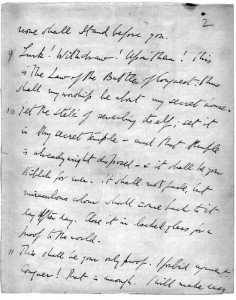 2
none shall stand before you.
9 Lurk! Withdraw! Upon them! This
is The Law of the Battle of Conquest - thus
shall my worship be about my secret house.
10 Get the stélé of revealing itself; set it
in thy secret temple - and that temple
is already aright disposed - & it shall be your
Kiblah for ever. It shall not fade, but
miraculous colour shall come back to it
day after day. Close it in locked glass for a
proof to the world.
11 This shall be your only proof. I forbid argument.
Conquer! That is enough. I will make easy